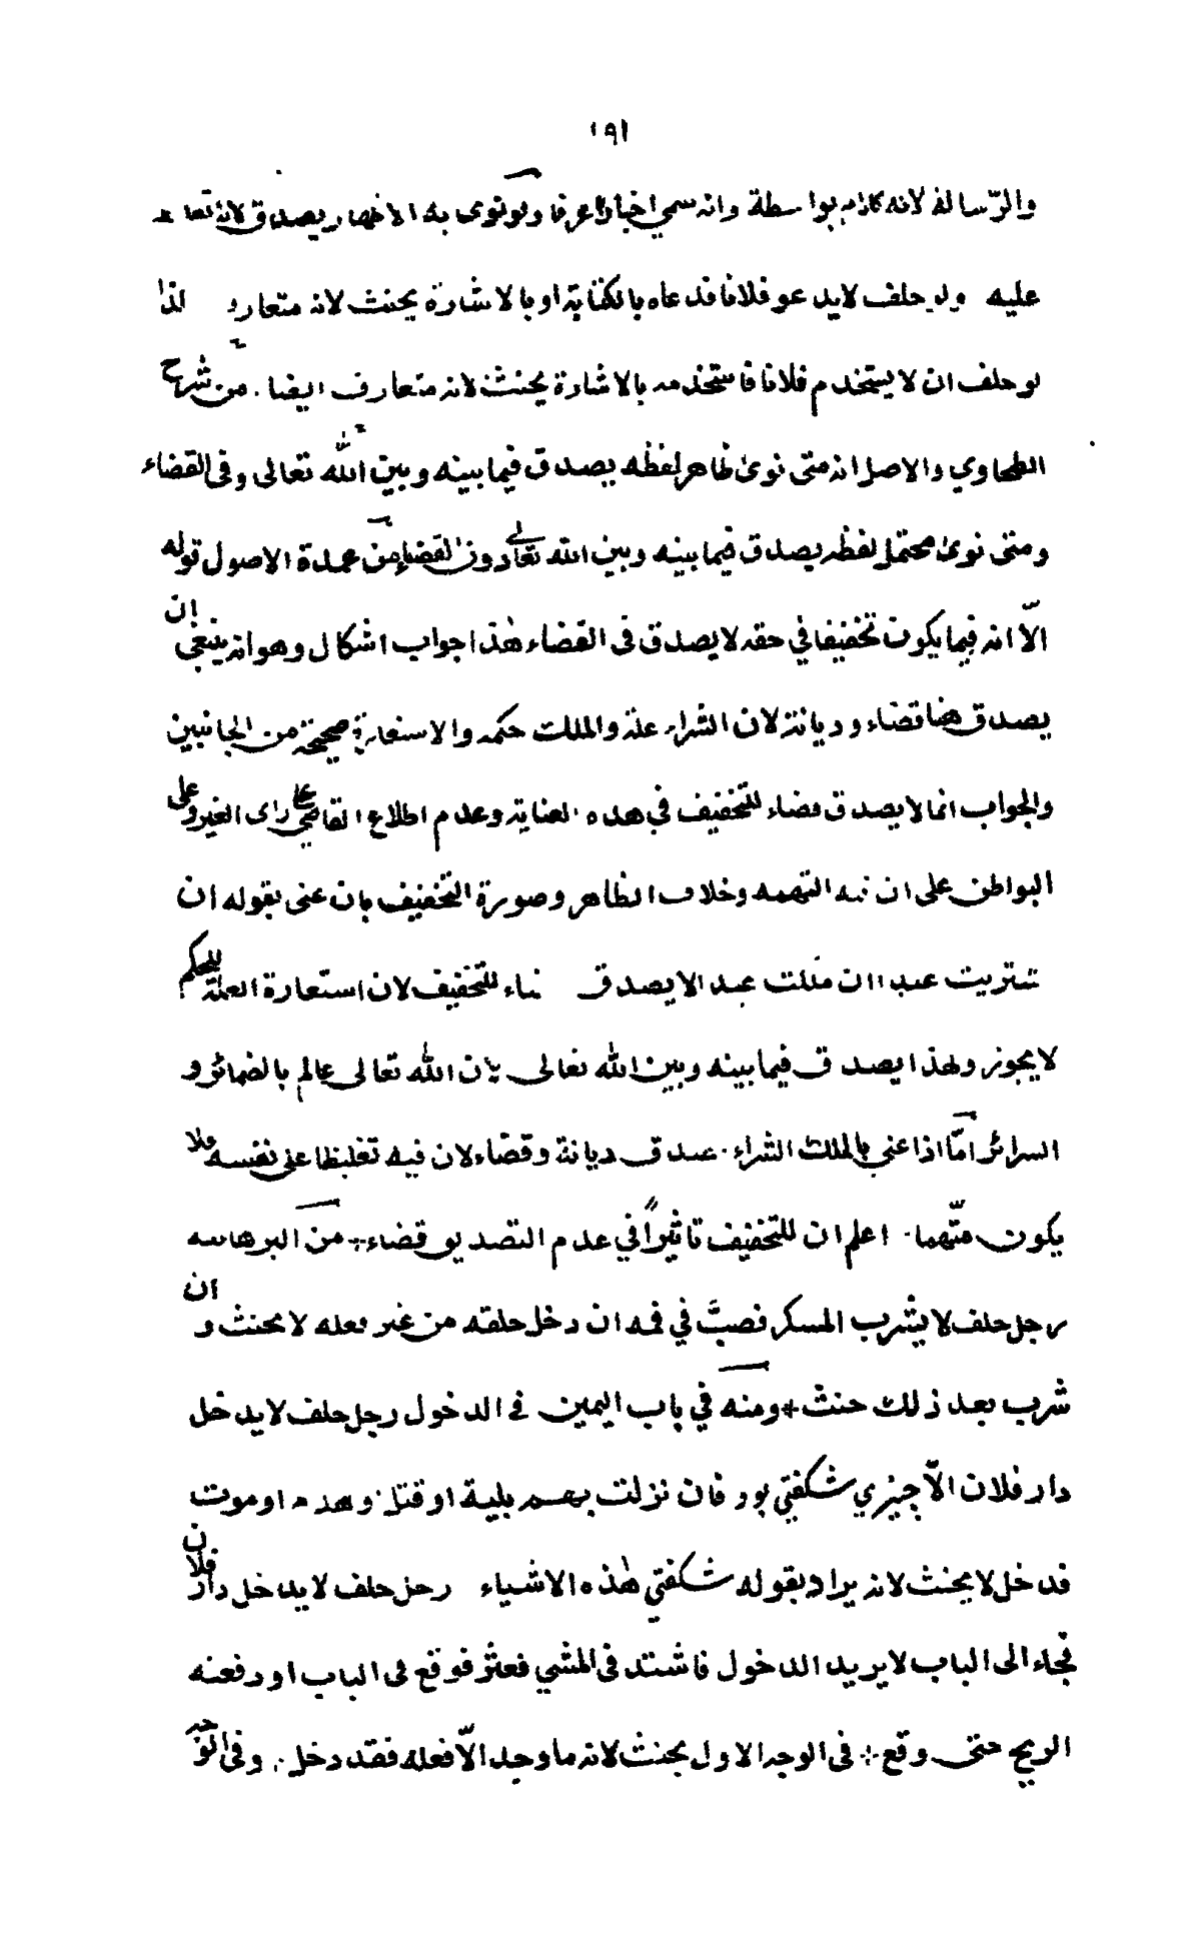 ١٩١
والرّسالة لانه كلام بواسطة وانه سمي اخبارا عرفا ولو نوى به الاظهار يصدق لانه
عليه ولو حلف لا يدعو فلانا فدعاه بالكتابة او بالاشارة يحنث لانه متعارف كذا
لو حلف ان لا يستخدم فلانا فاستخدمه بالاشارة يحنث لانه متعارف ايضا . من شرح
الطحاوي والاصل انه متى نوى ظاهر لفظه يصدق فيما بينه وبين الله تعالى وفى القضاء
ومتى نوى محتمل لفظه يصدق فيما بينه وبين الله تعالى دون القضاء من عمدة الاصول قوله
الّا انه فيما يكون تخفيفا في حقه لا يصدق فى القضاء هذا جواب اشكال وهو انه ينبغى ان
يصدق هنا قضاء وديانة لان الشراء علة والملك حكمه والاستعارة صحيحة من الجانبين
والجواب انما لا يصدق قضاء للتخفيف في هذه العناية وعدم اطلاع القاضي على راى الغير وعلى
البواطن على ان فيه التهمه وخلاف الظاهر وصورة التخفيف بان عنى بقوله ان
شتريت عبدا ان ملكت عبدا لا يصدق قضاء للتخفيف لان استعارة العلة للحكم
لا يجوز ولهذا يصدق فيما بينه وبين الله تعالى لان الله تعالى عالم بالضمائر و
السرائر امّا اذا عنى بالملك الشراء . صدق ديانة وقضاء لان فيه تغليظا على نفسه فلا
يكون متّهما . اعلم ان للتخفيف تاثيراً في عدم التصديق قضاء من البرهانيه
رجل حلف لا يشرب المسكر فصبّ في فمه ان دخل حلقه من غير فعله لا يحنث وان
شرب بعد ذلك حنث + ومنه في باب اليمين في الدخول رجل حلف لا يدخل
دار فلان الّا چيزي شكفتي بود فان نزلت بهم بلية او قتل وهدم او موت
فدخل لا يحنث لانه يراد بقوله شكفتي هذه الاشياء رجل حلف لا يدخل دار فلان
فجاء الى الباب لا يريد الدخول فاشتد فى المشي فعثر فوقع فى الباب او دفعته
الريح حتى وقع ÷ فى الوجه الاول يحنث لانه ما وجد الّا فعله فقد دخل . وفى الوجه